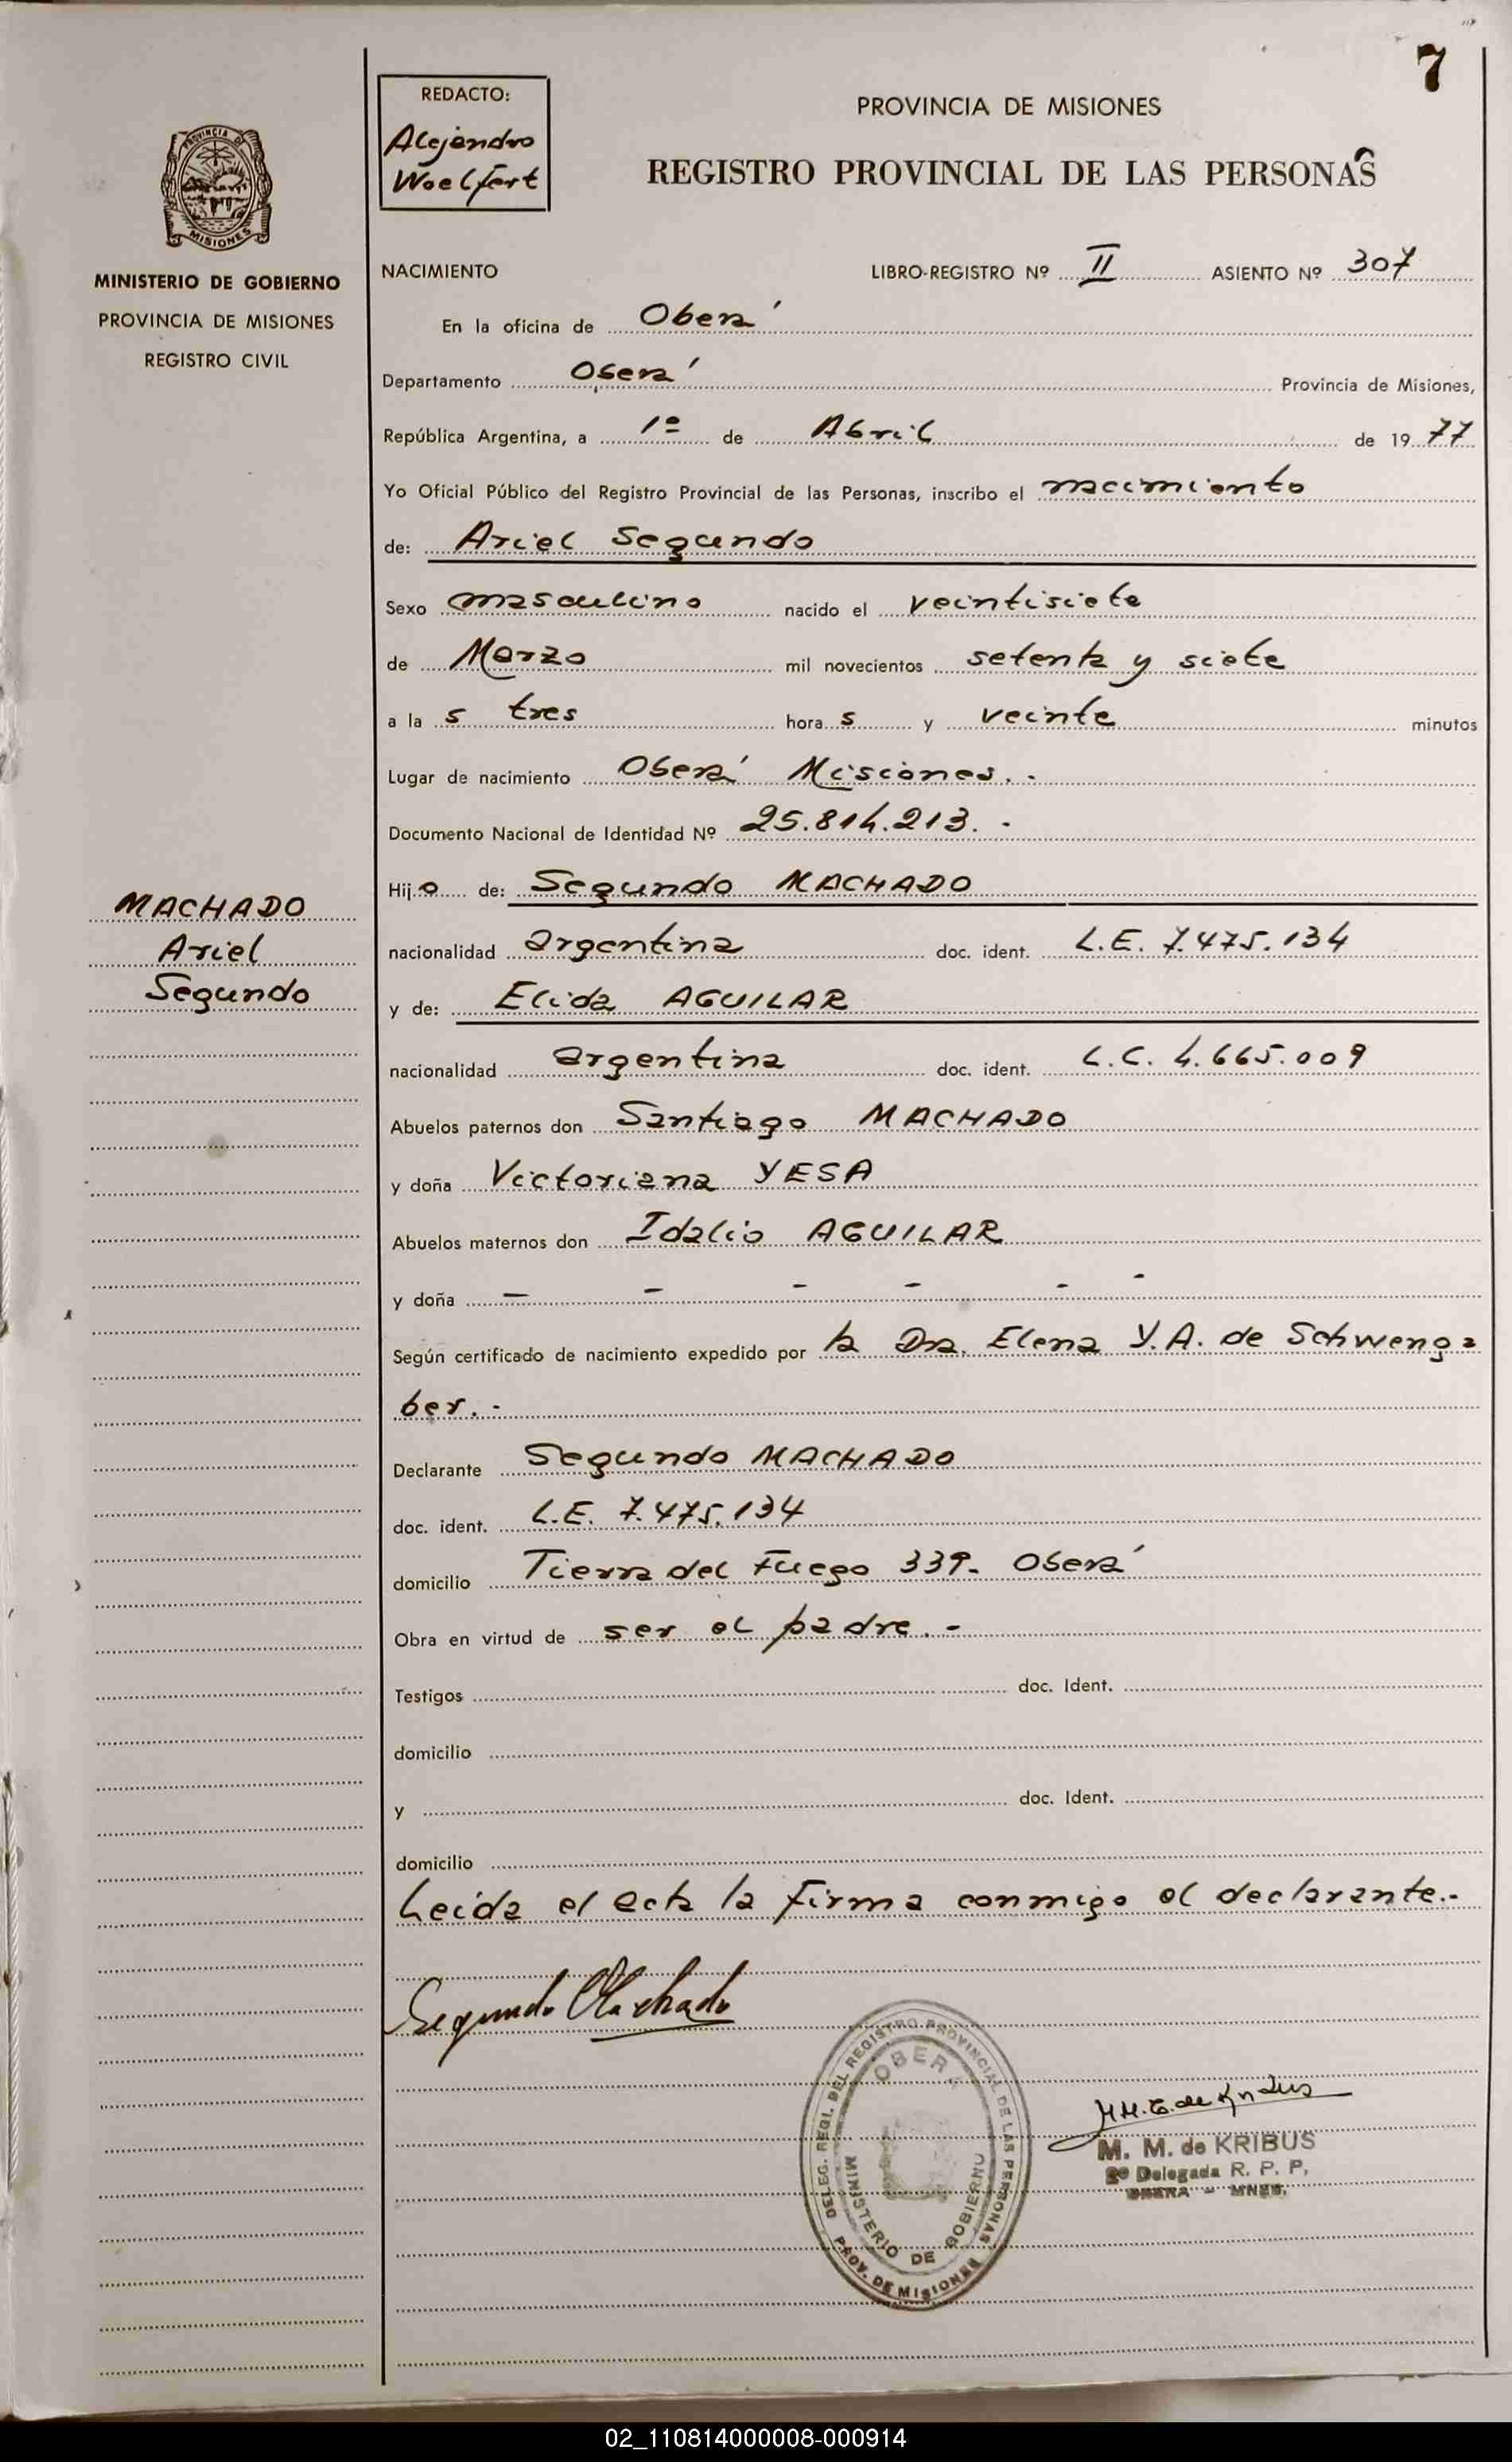 7
REDACTO:
Alejandro
Woelfert
PROVINCIA DE MISIONES
REGISTRO PROVINCIAL DE LAS PERSONAS
PROVINCIA DE
MISIONES
MINISTERIO DE GOBIERNO
PROVINCIA DE MISIONES
REGISTRO CIVIL
NACIMIENTO LIBRO-REGISTRO Nº II ASIENTO Nº 307
En la oficina de Oberá
Departamento Oberá Provincia de Misiones,
República Argentina, a 1º de Abril de 1977
Yo Oficial Público del Registro Provincial de las Personas, inscribo el nacimiento
de: Ariel Segundo
Sexo masculino nacido el veintisiete
de Marzo mil novecientos setenta y siete
a la s tres hora s y veinte minutos
Lugar de nacimiento Oberá Misiones. -
Documento Nacional de Identidad Nº 25.814.213. -
Hijo de: Segundo MACHADO
MACHADO
Ariel
Segundo
nacionalidad argentina doc. ident. L.E. 7.475.134
y de: Elida AGUILAR
nacionalidad argentina doc. ident. L.C. 4.665.009
Abuelos paternos don Santiago MACHADO
y doña Victoriana YESA
Abuelos maternos don Idalio AGUILAR
y doña — - - - - -
Según certificado de nacimiento expedido por la Dra. Elena Y.A. de Schweng=
ber. -
Declarante Segundo MACHADO
doc. ident. L.E. 7.475.134
domicilio Tierra del Fuego 339- Oberá
Obra en virtud de ser el padre. -
Testigos doc. Ident.
domicilio
y doc. Ident.
domicilio
Leída el acta la firma conmigo el declarante.-
Segundo Machado
DELEG. REGI. DEL REGISTRO PROVINCIAL DE LAS PERSONAS
OBERA
MINISTERIO DE GOBIERNO
PROV. DE MISIONES
M. M. de KRIBUS
2º Delegada R. P. P.
OBERA - MNES.
02_110814000008-000914